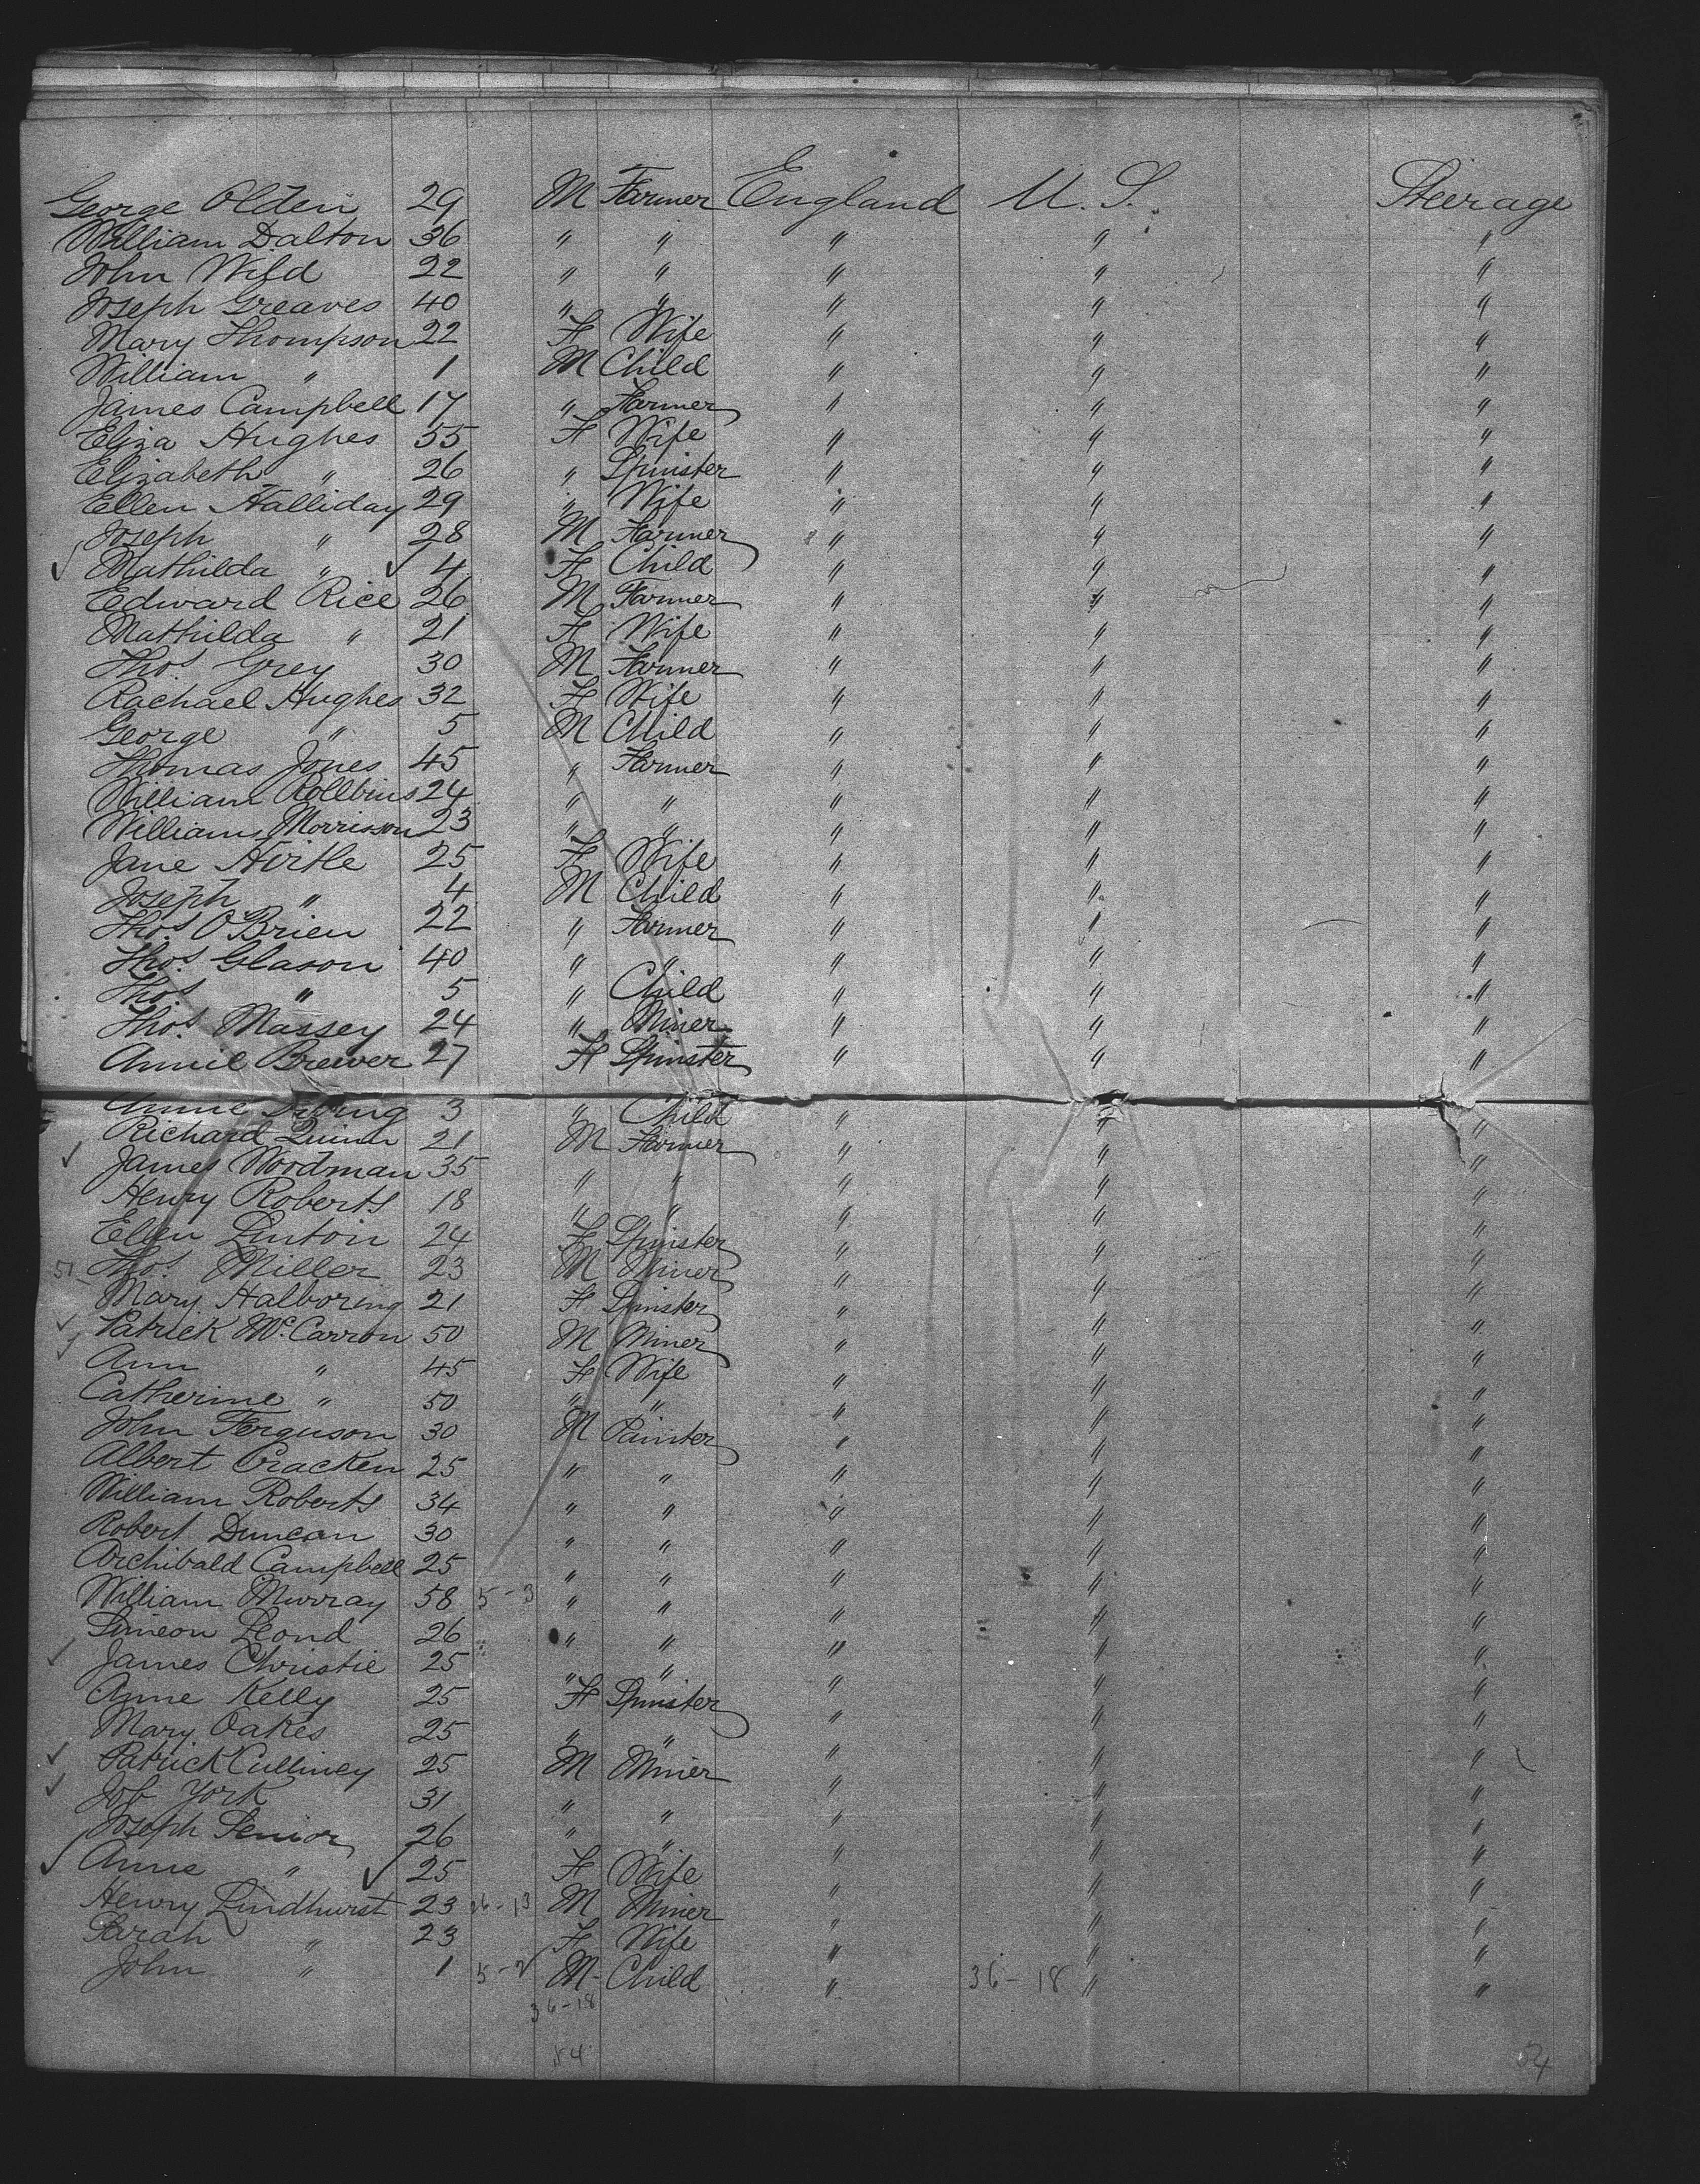 George Olden 29 M Farmer England U. S. Steerage
William Dalton 36 " " " " "
John Wild 22 " " " " "
Joseph Greaves 40 " " " " "
Mary Thompson 22 F Wife " " "
William " 1 M Child " " "
James Campbell 17 " Farmer " " "
Eliza Hughes 55 F Wife " " "
Elizabeth " 26 " Spinster " " "
Ellen Halliday 29 " Wife " " "
Joseph " 28 M Farmer " " "
✓ Mathilda " ✓ 4 F Child " " "
Edward Rice 26 M Farmer " " "
Mathilda " 21 F Wife " " "
Thos. Grey 30 M Farmer " " "
Rachael Hughes 32 F Wife " " "
George " 5 M Child " " "
Thomas Jones 45 " Farmer " " "
William Rollbins 24 " " " " "
William Morrisson 23 " " " " "
Jane Hirtle 25 F Wife " " "
Joseph " 4 M Child " " "
Thos. O'Brien 22 " Farmer " " "
Thos. Glason 40 " " " " "
Thos. " 5 " Child " " "
Thos. Massey 24 " Miner " " "
Annie Brewer 27 F Spinster " " "
Annie 3 " Child " " "
Richard Quinn 21 M Farmer " " "
✓ James Woodman 35 " " " " "
Henry Roberts 18 " " " " "
Ellen Linton 24 F Spinster " " "
51 Thos. Miller 23 M Miner " " "
Mary Halboring 21 F Spinster " " "
✓ Patrick McCarron 50 M Miner " " "
✓ Ann " 45 F Wife " " "
Catherine " 50 " " " " "
John Ferguson 30 M Painter " " "
Albert Cracken 25 " " " " "
William Roberts 34 " " " " "
Robert Duncan 30 " " " " "
Archibald Campbell 25 " " " " "
William Murray 58 5-3 " " " " "
Simeon Leond 26 " " " " "
✓ James Christie 25 " " " " "
Anne Kelly 25 F Spinster " " "
Mary Oakes 25 " " " " "
✓ Patrick Culliney 25 M Miner " " "
✓ Job York 31 " " " " "
Joseph Senior 26 " " " " "
✓ Anne " ✓ 25 F Wife " " "
Henry Lindhurst 23 26-13 M Miner " " "
Sarah " 23 F Wife " " "
John " 1 5-2 M Child " 36-18 " "
36-18
54 54